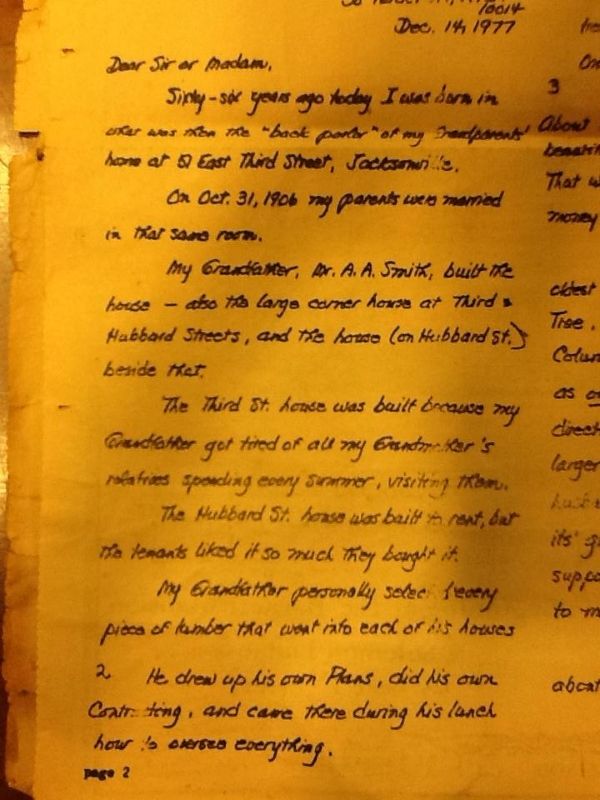 10014
Dec. 14, 1977
Dear Sir or Madam,
Sixty-six years ago today I was born in
what was then the "back parlor" of my Grandparents'
home at 51 East Third Street, Jacksonville.
On Oct. 31, 1906 my parents were married
in that same room.
My Grandfather, Mr. A. A. Smith, built the
house — also the large corner house at Third &
Hubbard Streets, and the house (on Hubbard St.)
beside that.
The Third St. house was built because my
Grandfather got tired of all my Grandmother's
relatives spending every summer, visiting them.
The Hubbard St. house was built to rent, but
the tenants liked it so much they bought it.
My Grandfather personally selected every
piece of lumber that went into each of his houses
2 He drew up his own Plans, did his own
Contracting, and came there during his lunch
hour to oversee everything.
page 2
3
About
That
money
oldest
Tree.
as
larger
its'
to
about